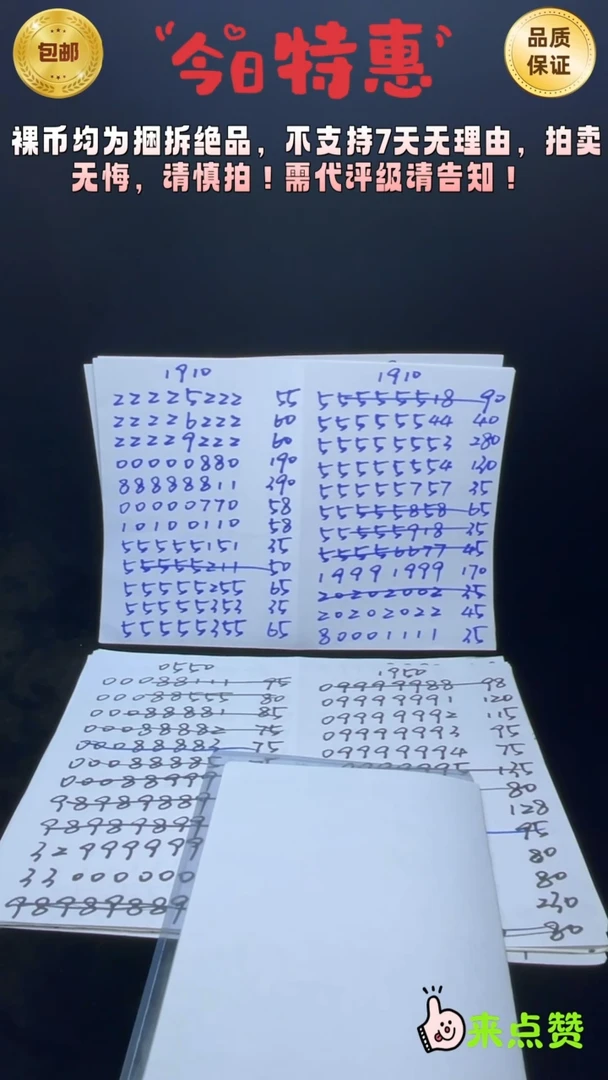 包邮
"今日特惠"
品质
保证
裸币均为捆拆绝品，不支持7天无理由，拍卖
无悔，请慎拍！需代评级请告知！
1910
22225222 55
22226222 60
22229222 60
00000880 190
88888811 390
00000770 58
10100110 58
55555151 35
55555211 50
55555255 65
55555353 35
55555355 65
1910
55555518 90
55555544 40
55555553 280
55555554 130
55555757 35
55555858 65
55555918 35
55556677 45
19991999 170
20202002 35
20202022 45
80001111 35
0550
00088111 95
00088555 80
00088881 85
00088882 75
00088883 75
0008888
00088999
98989889
98989899
32999999
33000000
98989889
1950
09999988 98
09999991 120
09999992 115
09999993 95
09999994 75
135
80
128
95
80
80
230
80
来点赞